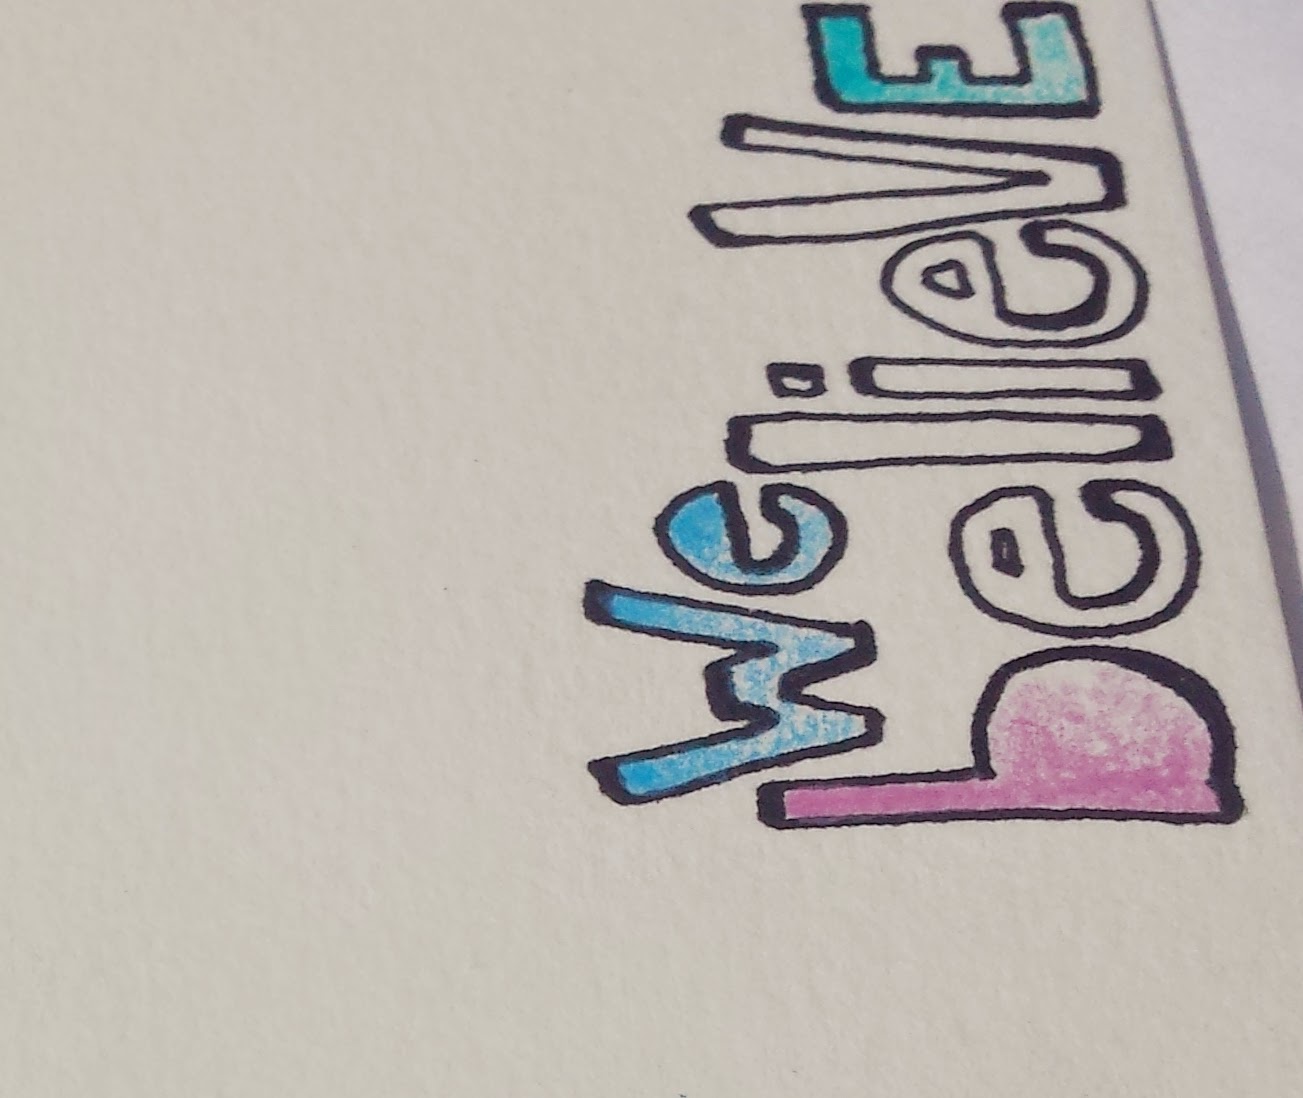 We
belieVE